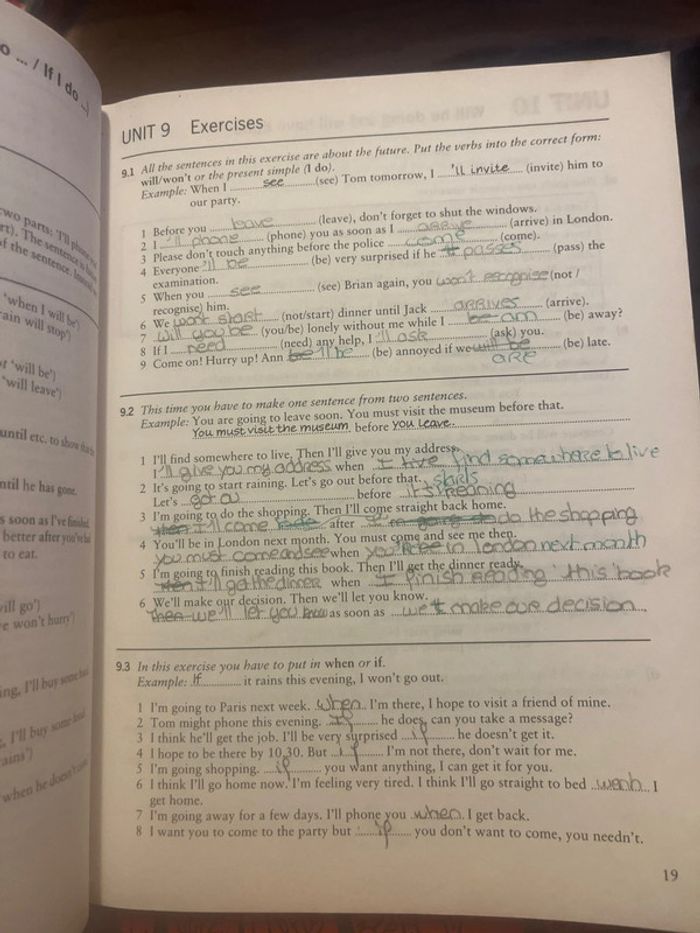 o ... / If I do ..)
wo parts: 'I'll
rt). The sentence
of the sentence.
'when I will be')
ain will stop')
t 'will be')
'will leave')
until etc. to show
ntil he has gone.
s soon as I've finished
better after you've had
to eat.
will go')
e won't hurry')
ing, I'll buy some
, I'll buy some
ains')
'when he doesn't
UNIT 9 Exercises
9.1 All the sentences in this exercise are about the future. Put the verbs into the correct form:
will/won't or the present simple (I do).
Example: When I see (see) Tom tomorrow, I 'll invite (invite) him to
our party.
1 Before you leave (leave), don't forget to shut the windows.
2 I 'll phone (phone) you as soon as I arrive (arrive) in London.
3 Please don't touch anything before the police come (come).
4 Everyone 'll be (be) very surprised if he passes (pass) the
examination.
5 When you see (see) Brian again, you won't recognise (not /
recognise) him.
6 We wont start (not/start) dinner until Jack arrives (arrive).
7 Will you be (you/be) lonely without me while I am (be) away?
8 If I need (need) any help, I 'll ask (ask) you.
9 Come on! Hurry up! Ann 'll be (be) annoyed if we will be (be) late.
are
9.2 This time you have to make one sentence from two sentences.
Example: You are going to leave soon. You must visit the museum before that.
You must visit the museum before you leave.
1 I'll find somewhere to live. Then I'll give you my address.
I'll give you my address when I find somewhere to live
2 It's going to start raining. Let's go out before that. starts
Let's go out before it's reaning
3 I'm going to do the shopping. Then I'll come straight back home.
I'll come after do the shopping
4 You'll be in London next month. You must come and see me then.
you must come and see when you'll be in london next month
5 I'm going to finish reading this book. Then I'll get the dinner ready.
I'll get the dinner when I finish reading this book
6 We'll make our decision. Then we'll let you know.
Then we'll let you know as soon as we make our decision
9.3 In this exercise you have to put in when or if.
Example: If it rains this evening, I won't go out.
1 I'm going to Paris next week. when I'm there, I hope to visit a friend of mine.
2 Tom might phone this evening. If he does, can you take a message?
3 I think he'll get the job. I'll be very surprised if he doesn't get it.
4 I hope to be there by 10.30. But if I'm not there, don't wait for me.
5 I'm going shopping. if you want anything, I can get it for you.
6 I think I'll go home now. I'm feeling very tired. I think I'll go straight to bed wenh I
get home.
7 I'm going away for a few days. I'll phone you when I get back.
8 I want you to come to the party but if you don't want to come, you needn't.
19